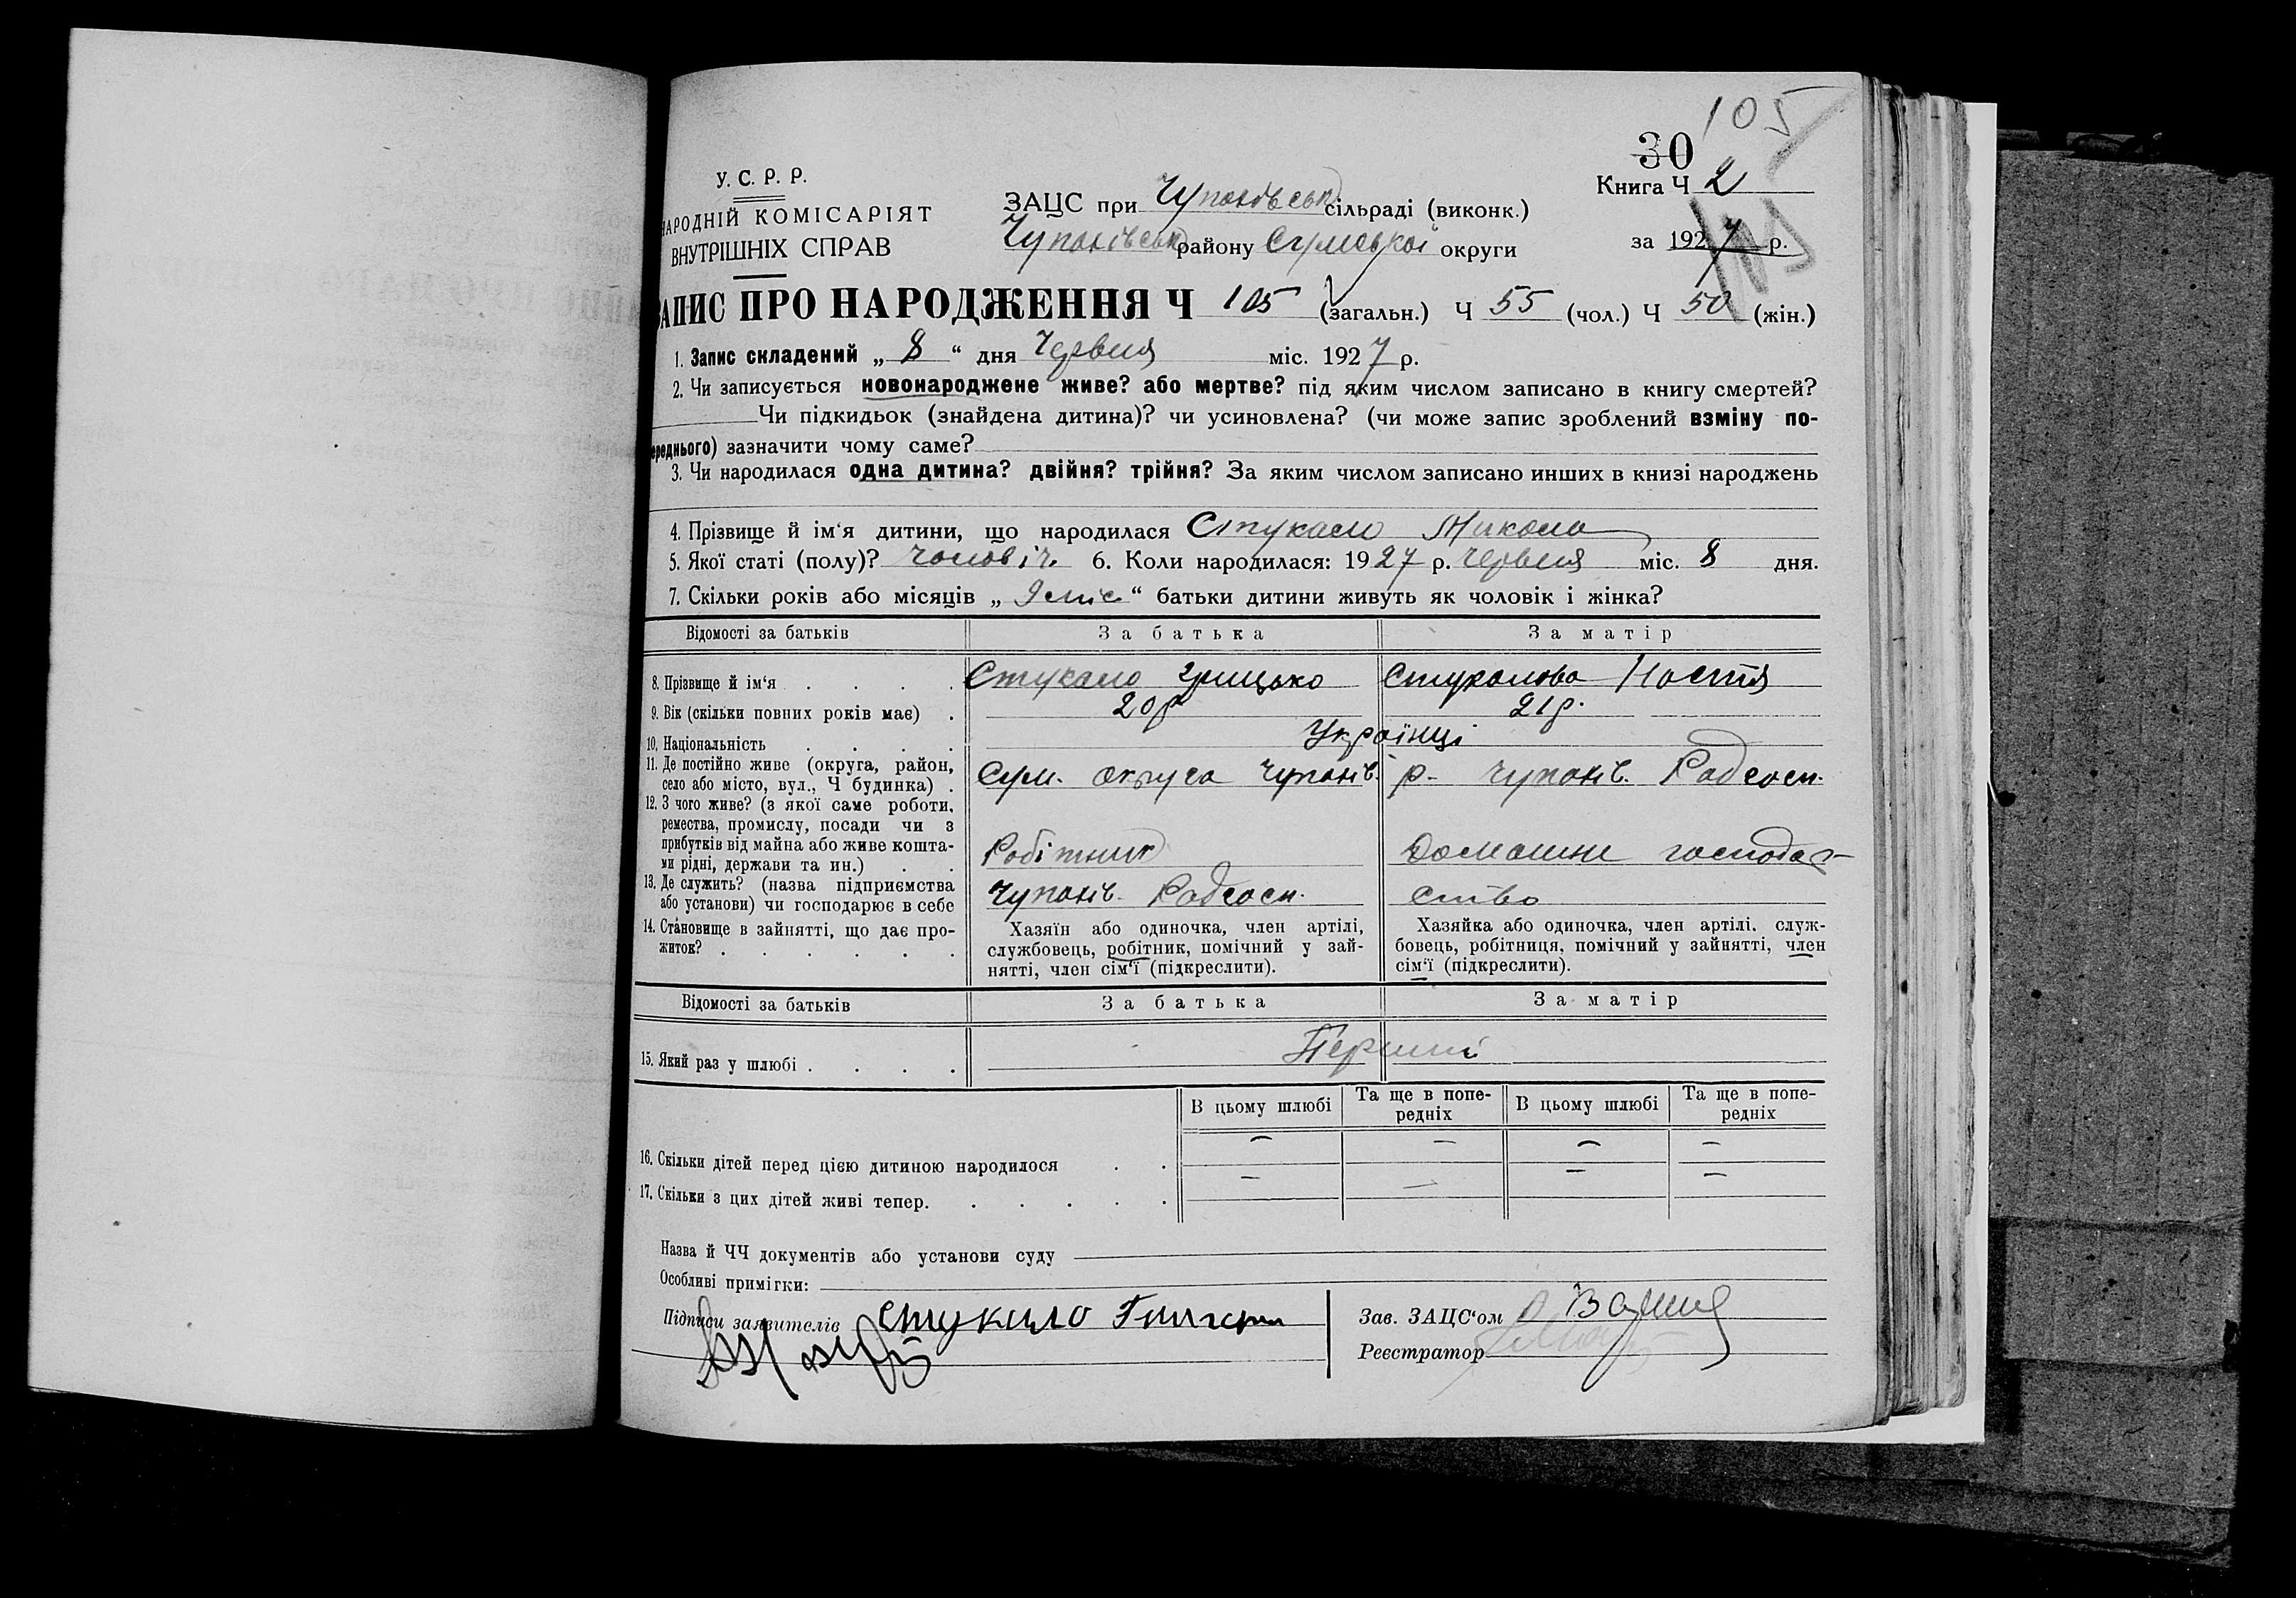 105
30
Книга Ч 2
У. С. Р. Р.
НАРОДНІЙ КОМІСАРІЯТ
ВНУТРІШНІХ СПРАВ
ЗАЦС при Чупахівськ сільраді (виконк.)
Чупахівськ району Сумської округи
за 1927 р.
105
ЗАПИС ПРО НАРОДЖЕННЯ Ч 105 (загальн.) Ч 55 (чол.) Ч 50 (жін.)
1. Запис складений „ 8 “ дня Червня міс. 1927 р.
2. Чи записується новонароджене живе? або мертве? під яким числом записано в книгу смертей?
Чи підкидьок (знайдена дитина)? чи усиновлена? (чи може запис зроблений взміну по-
ереднього) зазначити чому саме?
3. Чи народилася одна дитина? двійня? трійня? За яким числом записано инших в книзі народжень
4. Прізвище й ім‘я дитини, що народилася Стукало Микола
5. Якої статі (полу)? чоловіч. 6. Коли народилася: 1927 р. червня міс. 8 дня.
7. Скільки років або місяців „ 9 міс “ батьки дитини живуть як чоловік і жінка?
Відомості за батьків За батька За матір
8. Прізвище й ім‘я Стукало Грицько Стукалова Настя
9. Вік (скільки повних років має) 20 р 21 р.
10. Національність Українці
11. Де постійно живе (округа, район,
село або місто, вул., Ч будинка) Сум. округа Чупахів. р- Чупахів. Радгосп.
12. З чого живе? (з якої саме роботи,
ремества, промислу, посади чи з
прибутків від майна або живе кошта-
ми рідні, держави та ин.) Робітник Домашнє господар-
13. Де служить? (назва підприємства
або установи) чи господарює в себе Чупахів. Радгосп. ство
14. Становище в зайнятті, що дає про-
житок?
Хазяїн або одиночка, член артілі,
службовець, робітник, помічний у зай-
нятті, член сім‘ї (підкреслити).
Хазяйка або одиночка, член артілі, служ-
бовець, робітниця, помічний у зайнятті, член
сім‘ї (підкреслити).
Відомості за батьків За батька За матір
15. Який раз у шлюбі Перший
В цьому шлюбі Та ще в попе-редніх В цьому шлюбі Та ще в попе-редніх
16. Скільки дітей перед цією дитиною народилося — — — —
17. Скільки з цих дітей живі тепер. — — — —
Назва й ЧЧ документів або установи суду
Особливі примітки:
Підписи заявителів Стукало
Зав. ЗАЦС‘ом
Реєстратор